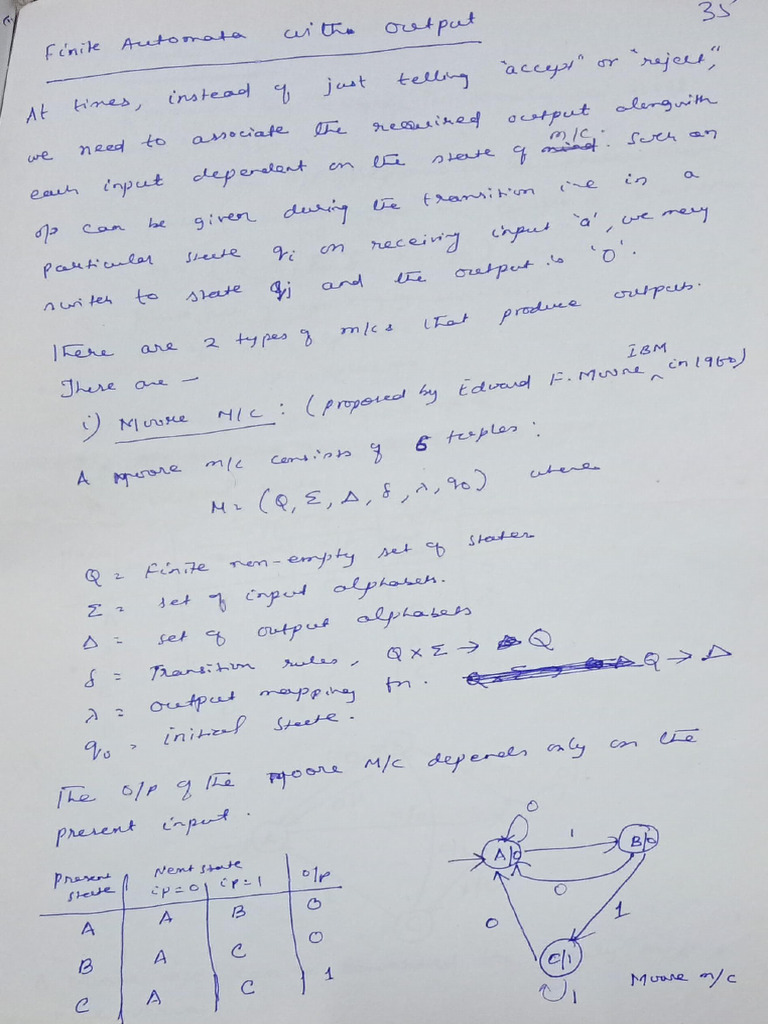 35
Finite Automata with output
At times, instead of just telling "accept" or "reject",
we need to associate the required output alongwith
each input dependent on the state of m/c. Such an
o/p can be given during the transition i.e in a
particular state qi on receiving input 'a', we may
switch to state qj and the output is '0'.
There are 2 types of m/cs that produce outputs.
There are —
i) Moore M/C : (proposed by Edward F. Moore, IBM in 1960)
A Moore m/c consists of 6 tuples :
M = (Q, Σ, Δ, δ, λ, q0) where
Q = Finite non-empty set of states
Σ = set of input alphabets.
Δ = set of output alphabets
δ = Transition rules, Q × Σ → Q
λ = output mapping fn. Q → Δ
q0 = initial state.
The O/P of the Moore M/C depends only on the
present input.
Present state | Next state ip=0 | ip=1 | O/p
A | A | B | 0
B | A | C | 0
C | A | C | 1
0
A/0 1 B/0
0
0 1
C/1
1
Moore m/c